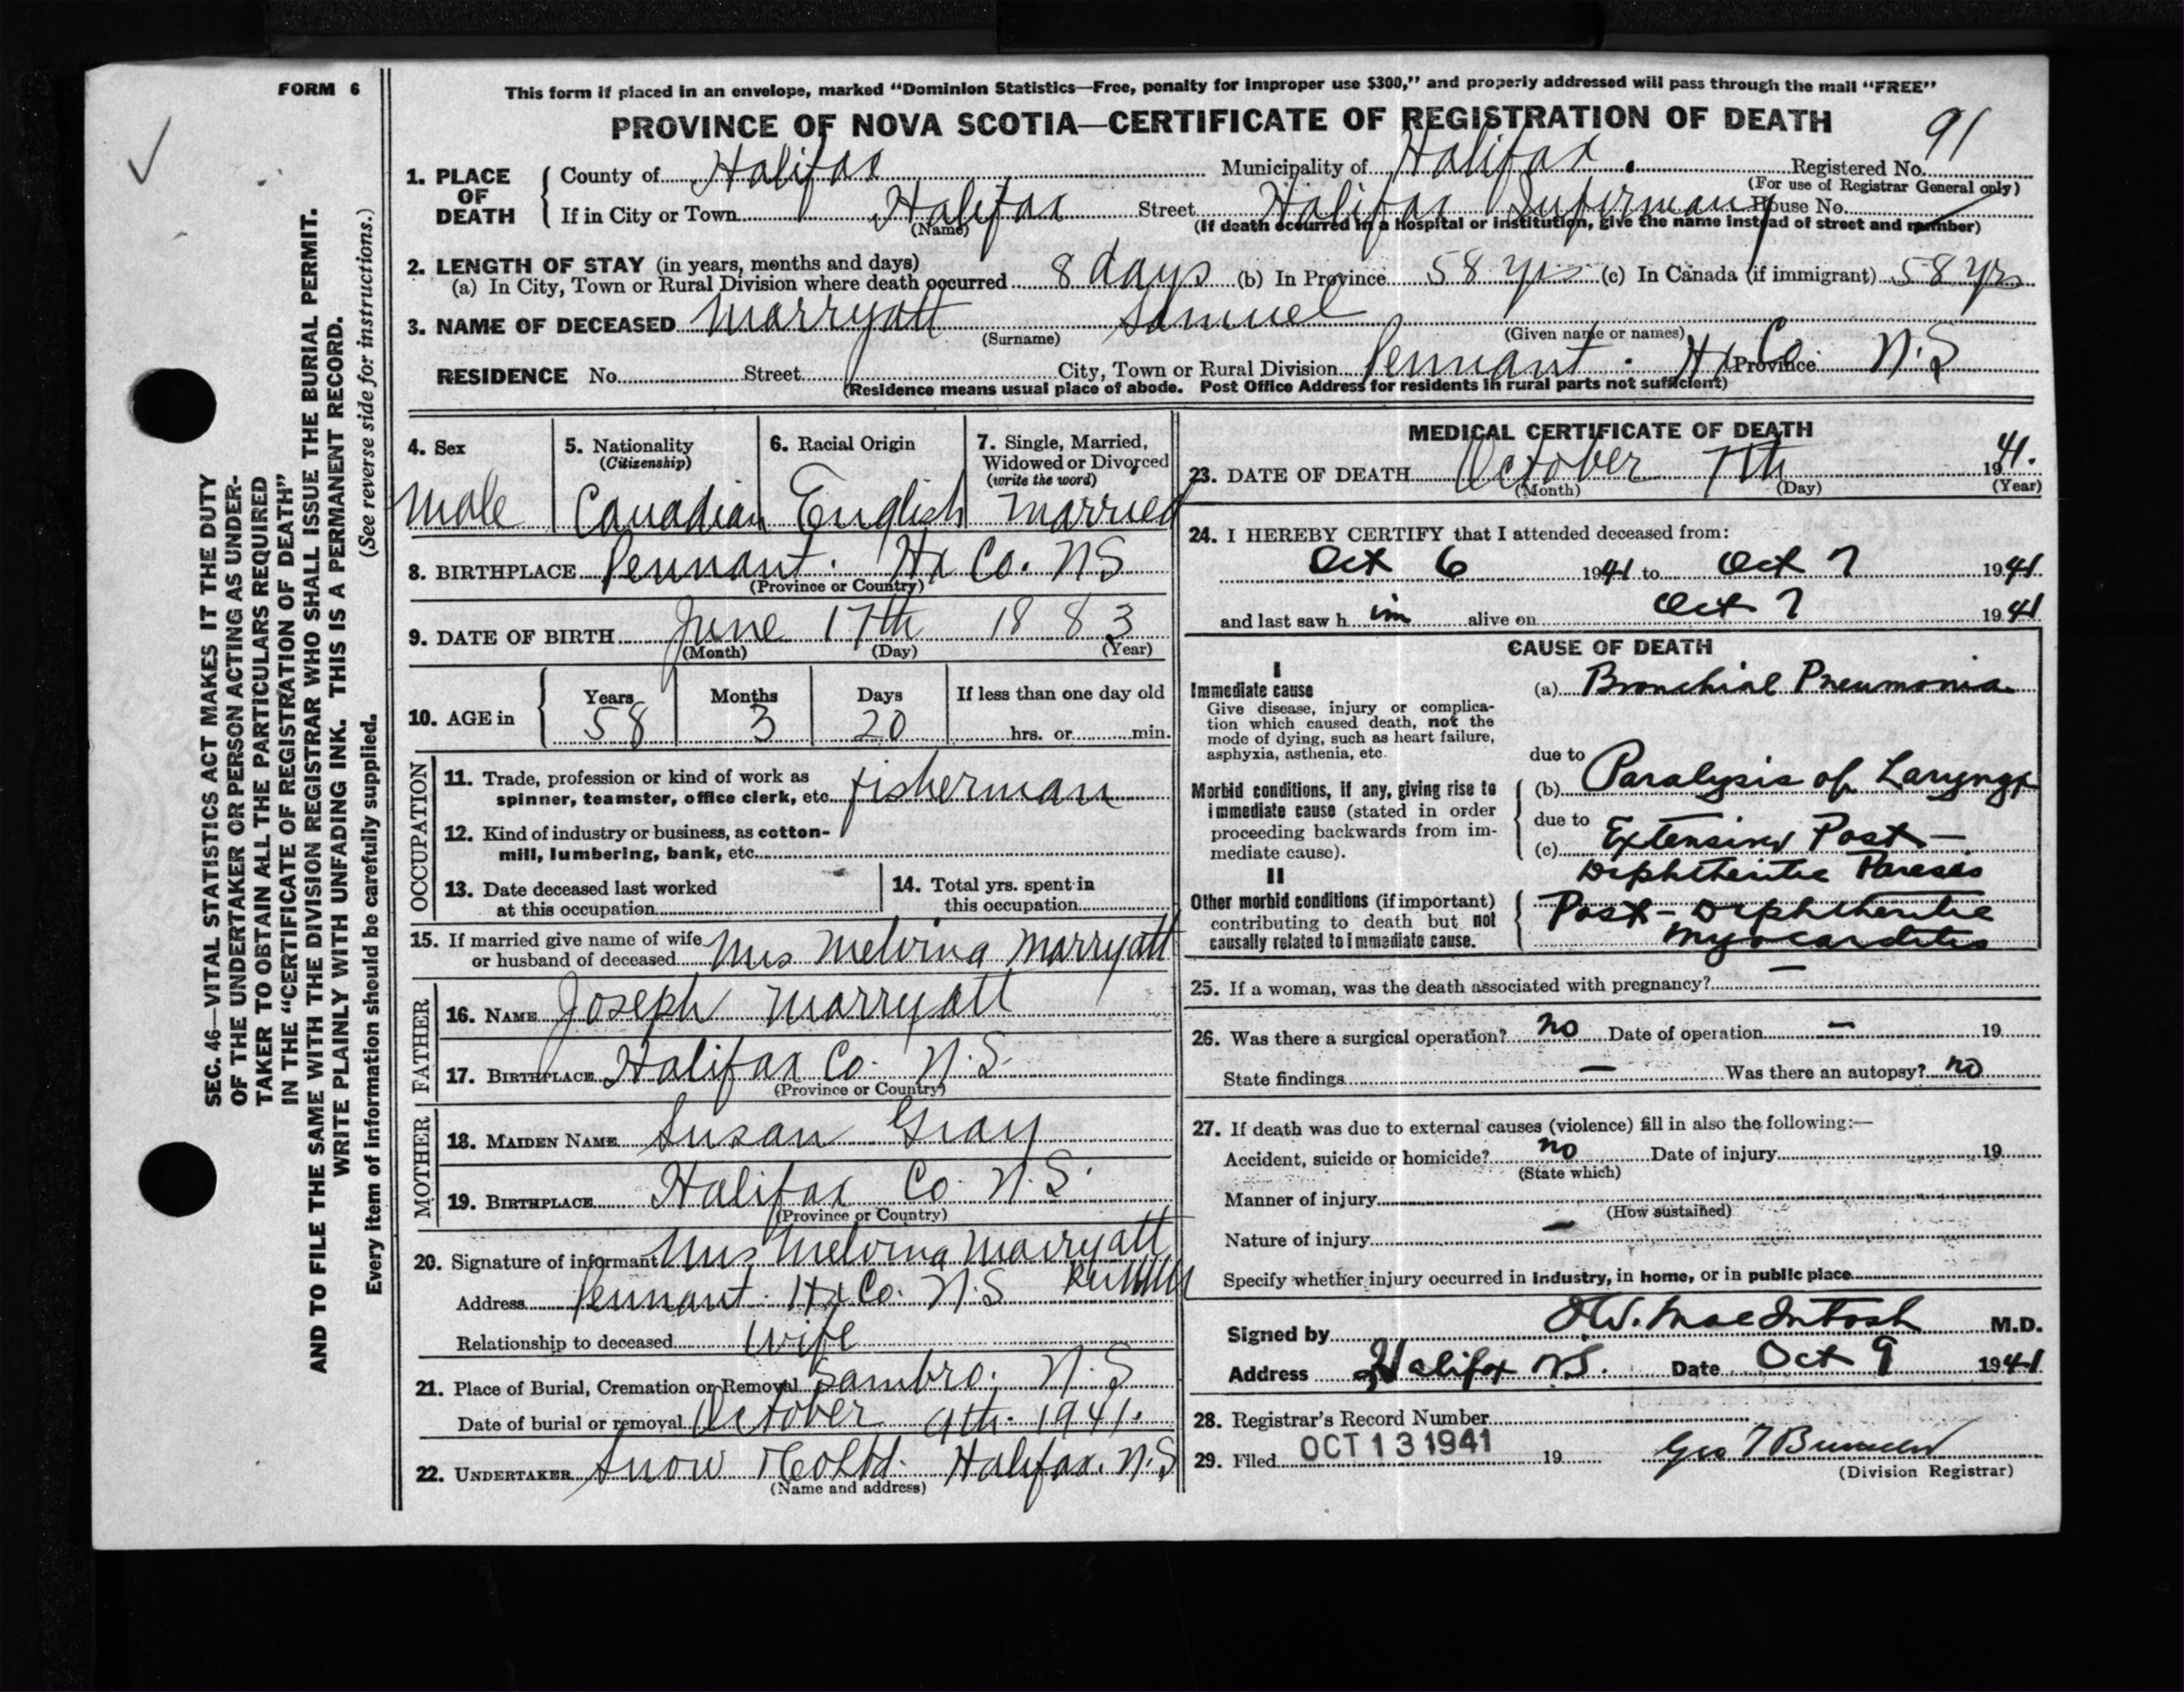 FORM 6
This form if placed in an envelope, marked "Dominion Statistics—Free, penalty for improper use $300," and properly addressed will pass through the mail "FREE"
PROVINCE OF NOVA SCOTIA—CERTIFICATE OF REGISTRATION OF DEATH
91
1. PLACE OF DEATH
County of Halifax Municipality of Halifax Registered No.
(For use of Registrar General only)
If in City or Town Halifax Street Halifax Infirmary House No.
(Name) (If death occurred in a hospital or institution, give the name instead of street and number)
2. LENGTH OF STAY (in years, months and days)
(a) In City, Town or Rural Division where death occurred 8 days (b) In Province 58 yrs (c) In Canada (if immigrant) 58 yrs
3. NAME OF DECEASED Marryatt Samuel
(Surname) (Given name or names)
RESIDENCE No. Street City, Town or Rural Division Pennant. Hx Co Province N.S
(Residence means usual place of abode. Post Office Address for residents in rural parts not sufficient)
4. Sex
Male
5. Nationality
(Citizenship)
Canadian
6. Racial Origin
English
7. Single, Married, Widowed or Divorced
(write the word)
Married
8. BIRTHPLACE Pennant. Hx Co. NS
(Province or Country)
9. DATE OF BIRTH June 17th 1883
(Month) (Day) (Year)
10. AGE in
Years Months Days If less than one day old
58 3 20 hrs. or min.
OCCUPATION
11. Trade, profession or kind of work as
spinner, teamster, office clerk, etc. fisherman
12. Kind of industry or business, as cotton-
mill, lumbering, bank, etc.
13. Date deceased last worked
at this occupation
14. Total yrs. spent in
this occupation
15. If married give name of wife
or husband of deceased Mrs Melvina Marryatt
FATHER
16. NAME Joseph Marryatt
17. BIRTHPLACE Halifax Co. N.S.
(Province or Country)
MOTHER
18. MAIDEN NAME Susan Gray
19. BIRTHPLACE Halifax Co. N.S.
(Province or Country)
20. Signature of informant Mrs Melvina Marryatt
Address Pennant. Hx Co. N.S
Relationship to deceased wife
21. Place of Burial, Cremation or Removal Sambro. N.S
Date of burial or removal October 9th. 1941.
22. UNDERTAKER Snow & Co Ltd. Halifax. N.S
(Name and address)
MEDICAL CERTIFICATE OF DEATH
23. DATE OF DEATH October 7th 1941.
(Month) (Day) (Year)
24. I HEREBY CERTIFY that I attended deceased from:
Oct 6 1941 to Oct 7 1941.
and last saw h im alive on Oct 7 1941
CAUSE OF DEATH
I
Immediate cause
Give disease, injury or complica-
tion which caused death, not the
mode of dying, such as heart failure,
asphyxia, asthenia, etc.
(a) Bronchial Pneumonia
due to
Morbid conditions, if any, giving rise to
immediate cause (stated in order
proceeding backwards from im-
mediate cause).
(b) Paralysis of Larynx
due to
(c) Extensive Post-
Diphtheritic Paresis
II
Other morbid conditions (if important)
contributing to death but not
causally related to immediate cause.
Post-Diphtheritic
Myocarditis
25. If a woman, was the death associated with pregnancy? —
26. Was there a surgical operation? no Date of operation — 19
State findings — Was there an autopsy? no
27. If death was due to external causes (violence) fill in also the following:—
Accident, suicide or homicide? no Date of injury 19
(State which)
Manner of injury
(How sustained)
Nature of injury —
Specify whether injury occurred in industry, in home, or in public place
Signed by MacIntosh M.D.
Address Halifax N.S. Date Oct 9 1941
28. Registrar's Record Number
29. Filed OCT 13 1941 19
(Division Registrar)
SEC. 46—VITAL STATISTICS ACT MAKES IT THE DUTY
OF THE UNDERTAKER OR PERSON ACTING AS UNDER-
TAKER TO OBTAIN ALL THE PARTICULARS REQUIRED
IN THE "CERTIFICATE OF REGISTRATION OF DEATH"
AND TO FILE THE SAME WITH THE DIVISION REGISTRAR WHO SHALL ISSUE THE BURIAL PERMIT.
WRITE PLAINLY WITH UNFADING INK. THIS IS A PERMANENT RECORD.
(See reverse side for instructions.)
Every item of information should be carefully supplied.